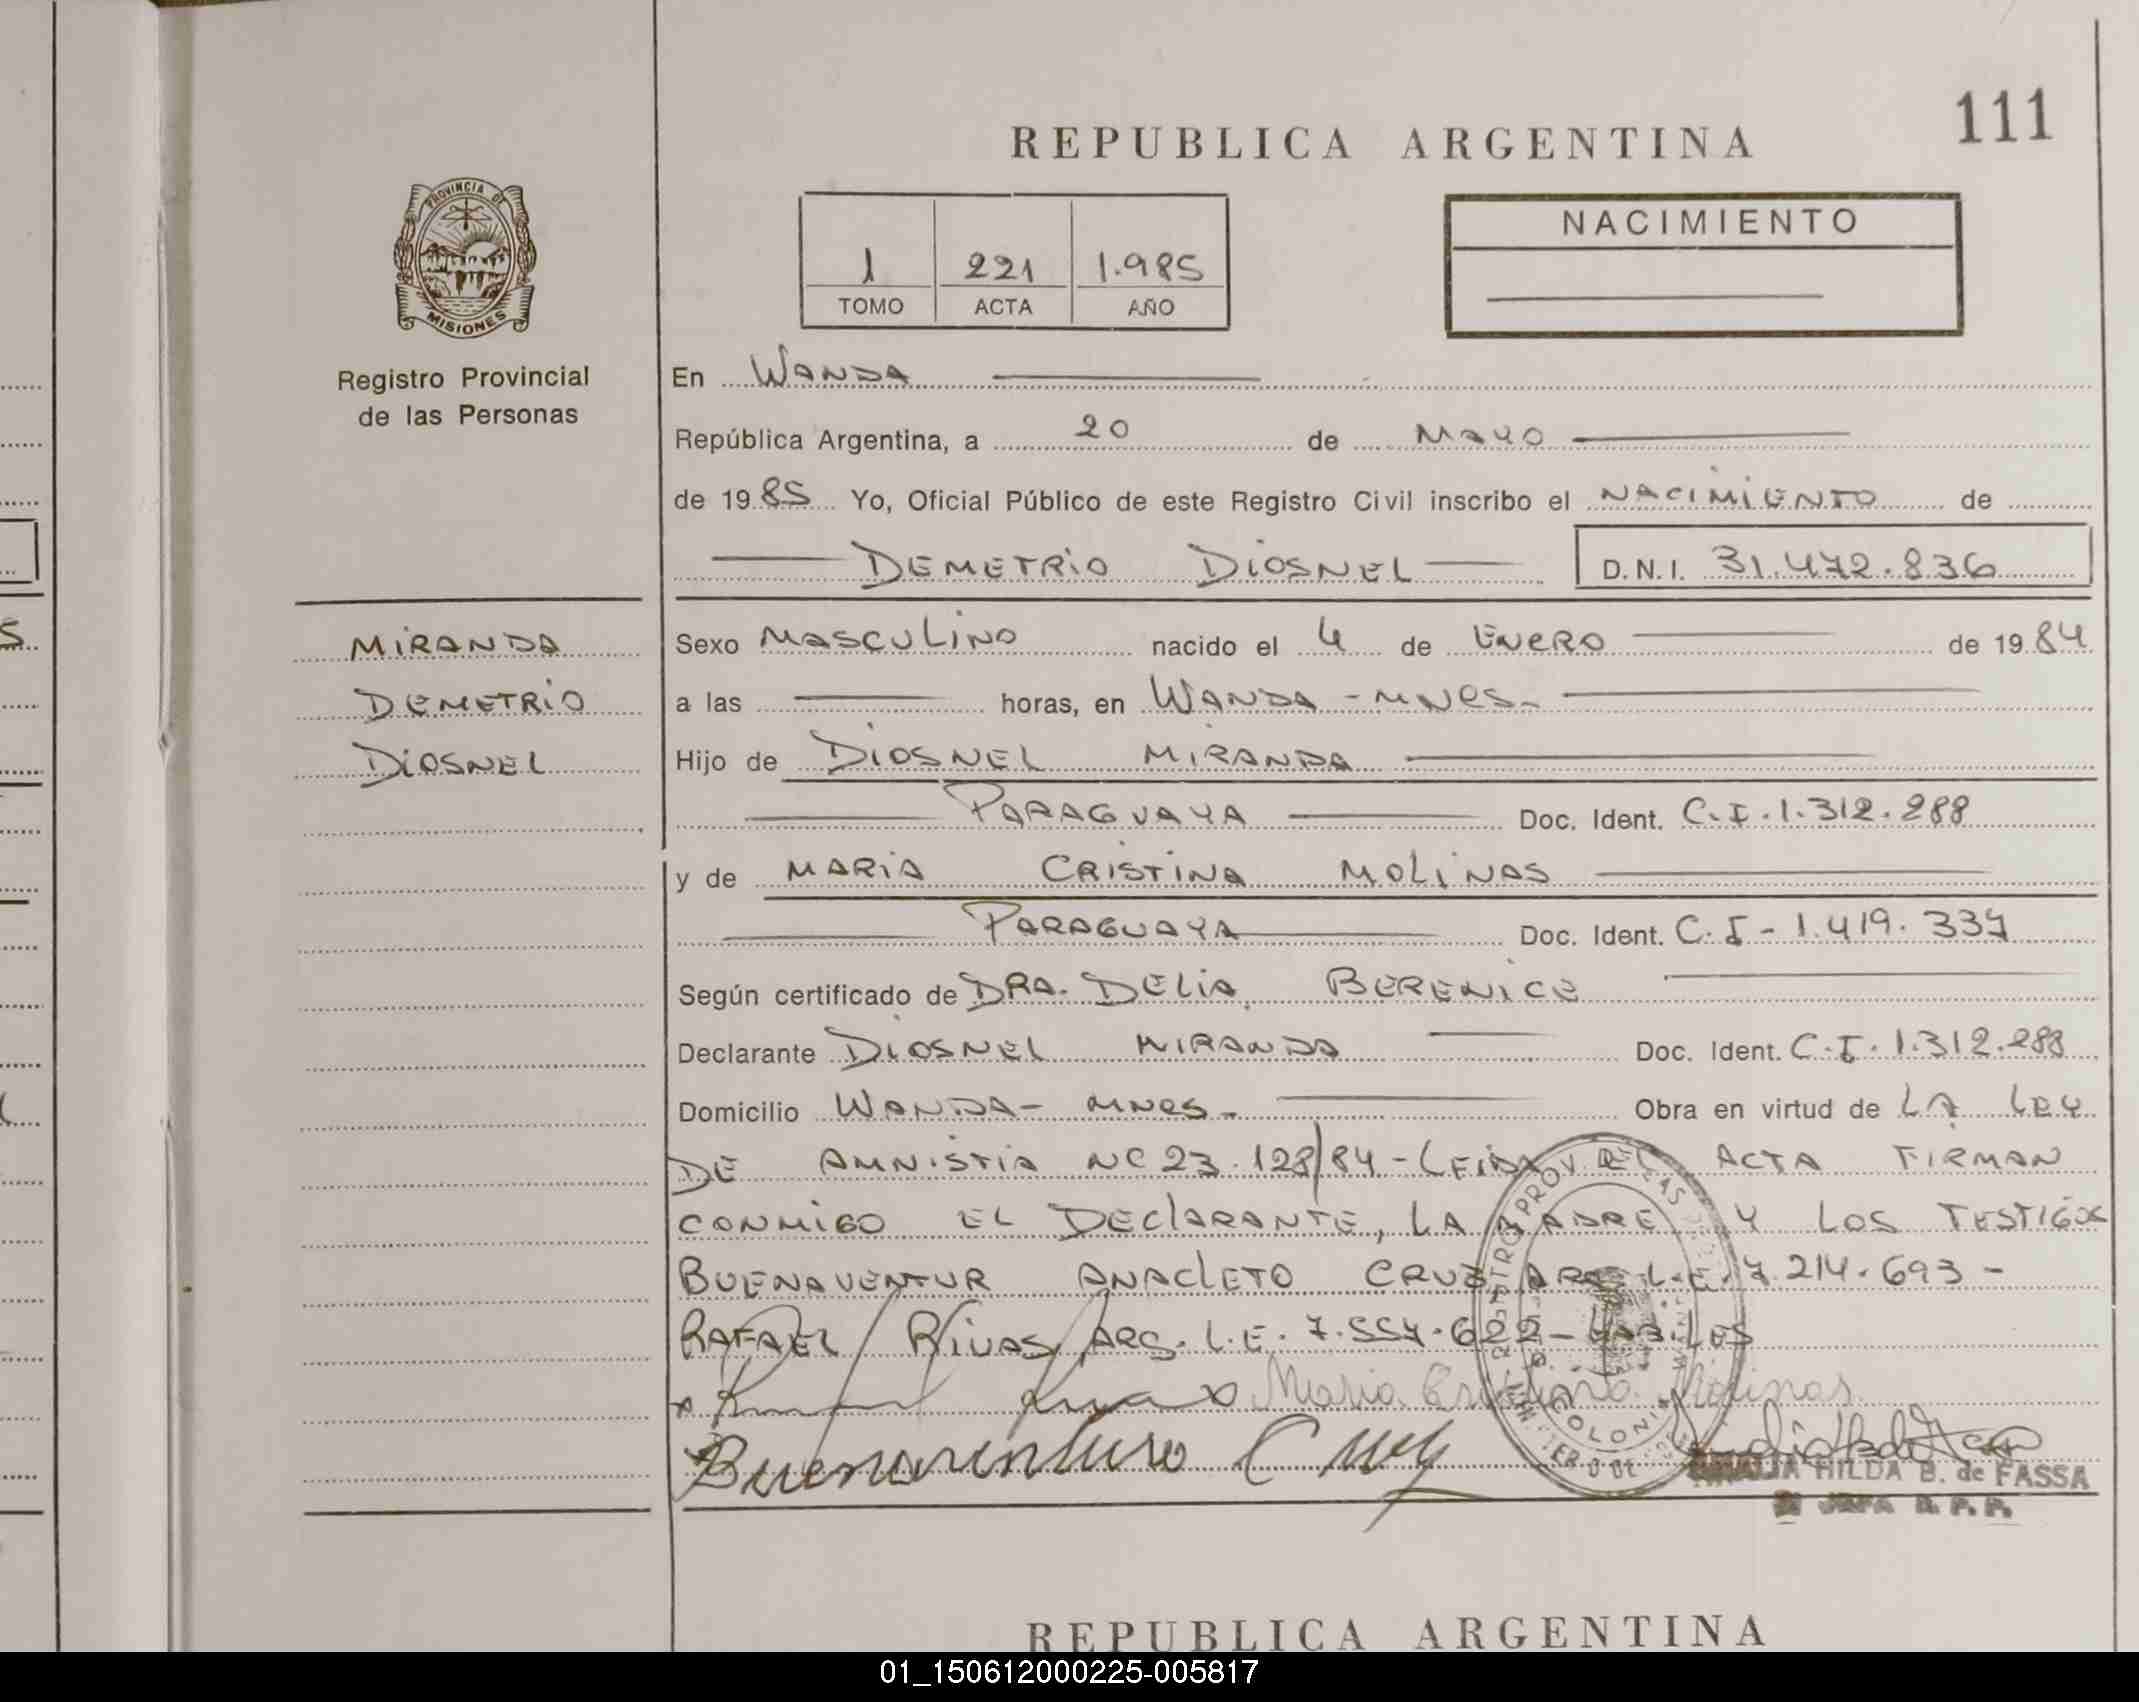 111
REPUBLICA ARGENTINA
PROVINCIA DE
MISIONES
Registro Provincial
de las Personas
1 221 1.985
TOMO ACTA AÑO
NACIMIENTO
En WANDA
República Argentina, a 20 de MAYO
de 1985 Yo, Oficial Público de este Registro Civil inscribo el NACIMIENTO de
DEMETRIO DIOSNEL D.N.I. 31.472.836
MIRANDA
DEMETRIO
DIOSNEL
Sexo MASCULINO nacido el 4 de ENERO de 1984
a las horas, en WANDA - MNES-
Hijo de DIOSNEL MIRANDA
PARAGUAYA Doc. Ident. C.I.1.312.288
y de MARIA CRISTINA MOLINAS
PARAGUAYA Doc. Ident. C.I-1.419.337
Según certificado de DRA. DELIA BERENICE
Declarante DIOSNEL MIRANDA Doc. Ident. C.I.1.312.288
Domicilio WANDA- MNES- Obra en virtud de LA LEY
DE AMNISTIA NC 23.128/84 - LEIDA EL ACTA FIRMAN
CONMIGO EL DECLARANTE, LA MADRE Y LOS TESTIGOS
BUENAVENTUR ANACLETO CRUZ ARG. L.E. 7.214.693-
RAFAEL RIVAS ARG. L.E. 7.557.622-
x x Maria Cristina Molinas
Buenaventura Cruz
COLONIA
HILDA B. de FASSA
JEFA R. P. P.
REPUBLICA ARGENTINA
01_150612000225-005817